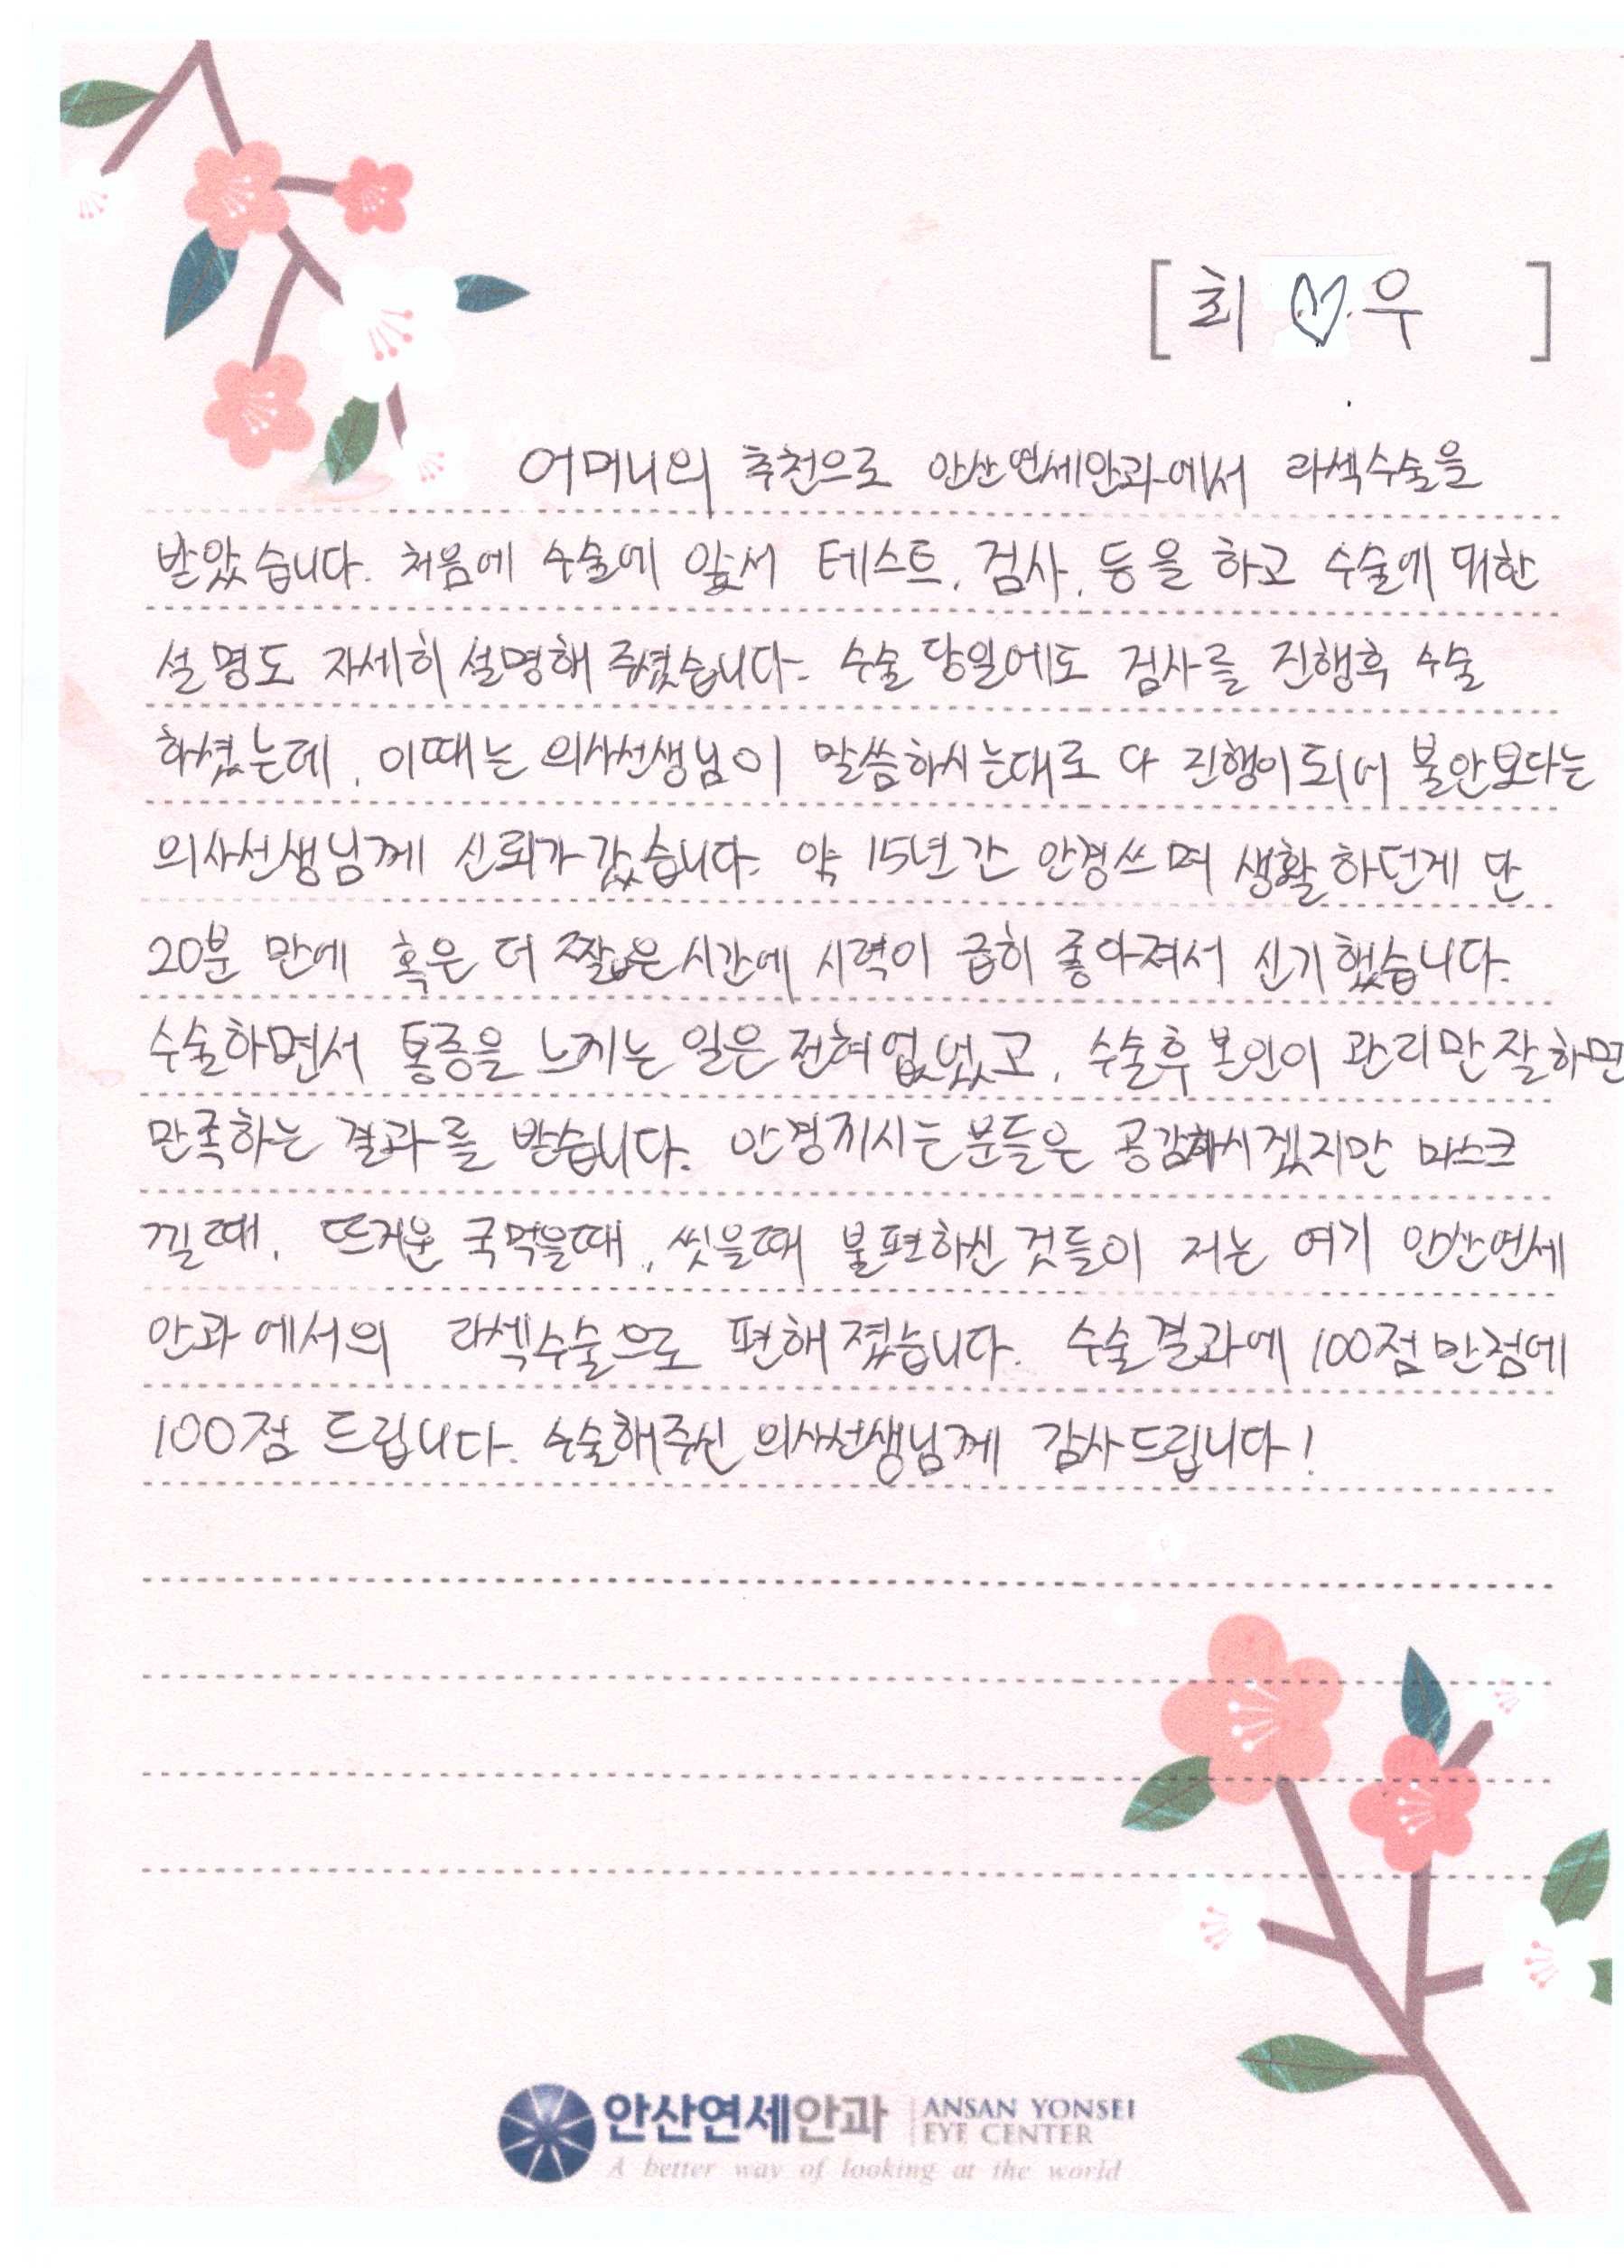 [최 ♡ 우 ]
어머니의 추천으로 안산연세안과에서 라섹수술을
받았습니다. 처음에 수술에 앞서 테스트, 검사, 등을 하고 수술에 위한
설명도 자세히 설명해 주셨습니다. 수술 당일에도 검사를 진행후 수술
하셨는데, 이때는 의사선생님이 말씀하시는대로 다 진행이되어 불안보다는
의사선생님께 신뢰가 갔습니다. 약 15년간 안경쓰며 생활하던게 단
20분 만에 혹은 더 짧은시간에 시력이 급히 좋아져서 신기했습니다.
수술하면서 통증을 느끼는 일은 전혀 없었고, 수술후 본인이 관리만잘하면
만족하는 결과를 받습니다. 안경끼시는분들은 공감하시겠지만 마스크
낄때, 뜨거운 국먹을때, 씻을때 불편하신 것들이 저는 여기 안산연세
안과에서의 라섹수술으로 편해졌습니다. 수술결과에 100점만점에
100점 드립니다. 수술해주신 의사선생님께 감사드립니다!
안산연세안과 ANSAN YONSEI
EYE CENTER
A better way of looking at the world